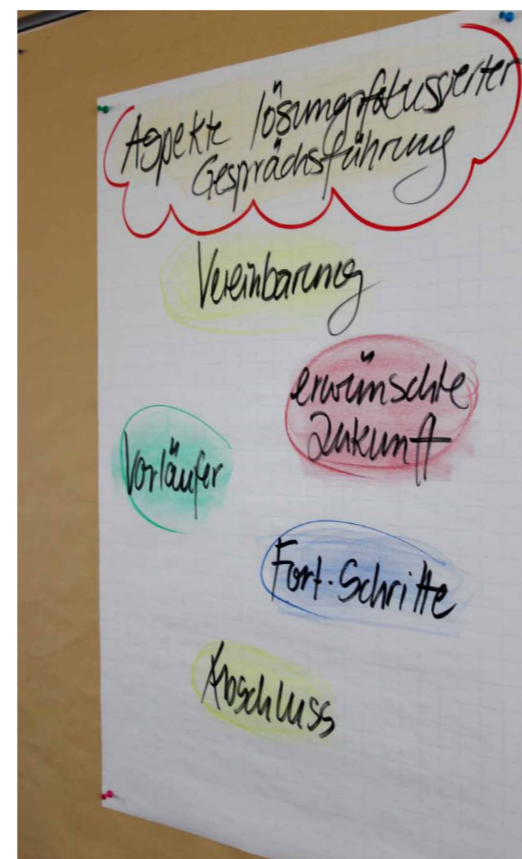 Aspekte lösungsfokussierter
Gesprächsführung
Vereinbarung
erwünschte
Zukunft
Vorläufer
Fort-Schritte
Abschluss